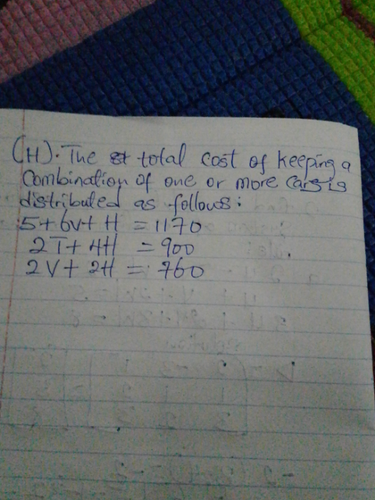 (H). The total cost of keeping a
Combination of one or more cars is
distributed as follows:
5+6v+H = 1170
2T+4H = 900
2V+2H = 760